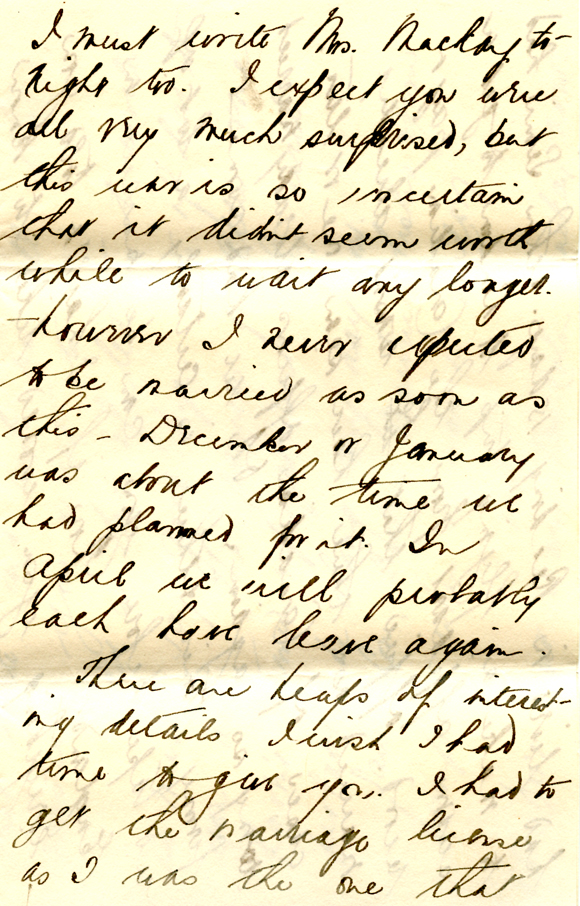 I must write Mrs. Mackay to-
night too. I expect you were
all very much surprised, but
this war is so uncertain
that it didn't seem worth
while to wait any longer.
However I never expected
to be married as soon as
this - December or January
was about the time we
had planned for it. In
April we will probably
each have leave again.
There are heaps of interest-
ing details I wish I had
time to give you. I had to
get the marriage license
as I was the one that